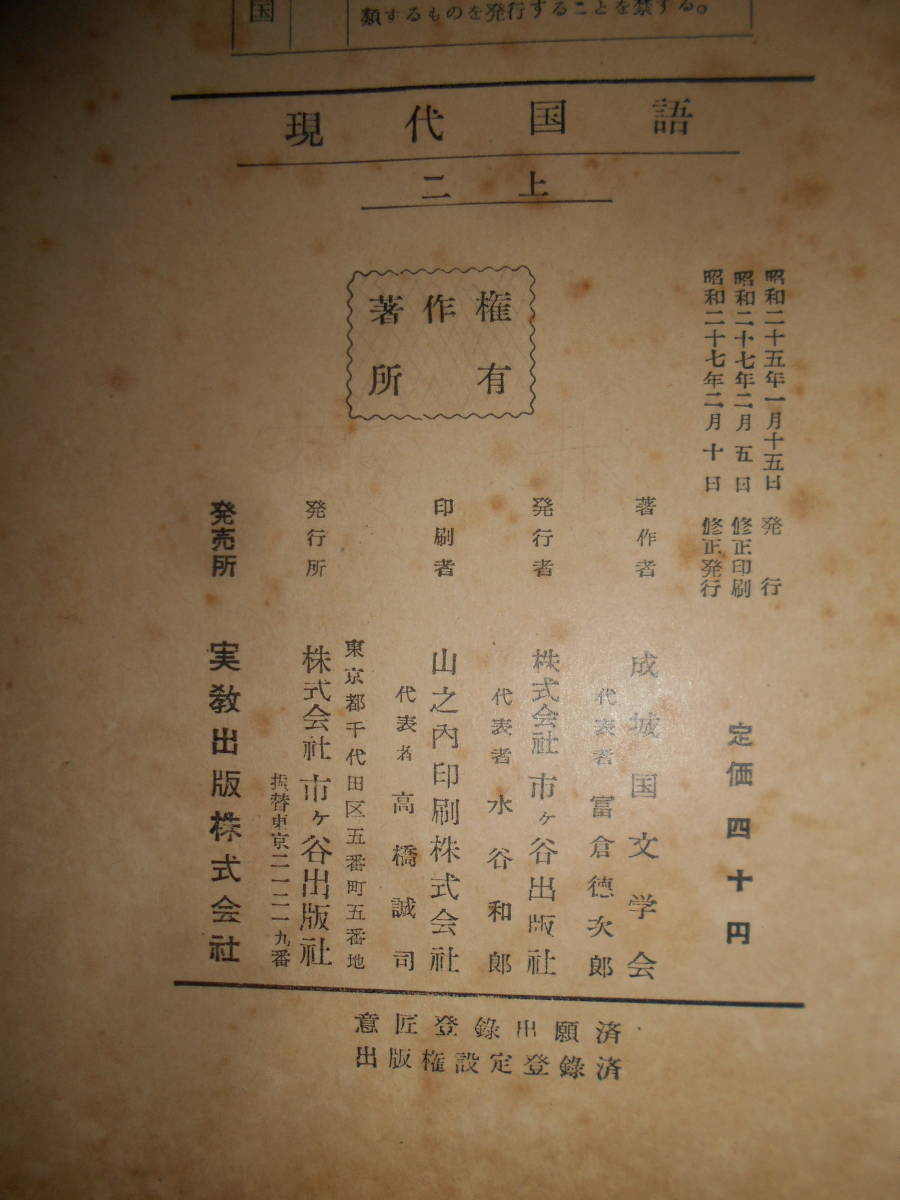 国
類するものを発行することを禁する。
現代国語
二上
昭和二十五年一月十五日 発行
昭和二十七年二月五日 修正印刷
昭和二十七年二月十日 修正発行
定価四十円
著作権
所有
著作者 成城国文学会
代表者 富倉徳次郎
発行者 株式会社 市ヶ谷出版社
代表者 水谷和郎
印刷者 山之内印刷株式会社
代表者 高橋誠司
東京都千代田区五番町五番地
発行所 株式会社 市ヶ谷出版社
振替東京二一二一九番
発売所 実教出版株式会社
意匠登録出願済
出版権設定登録済